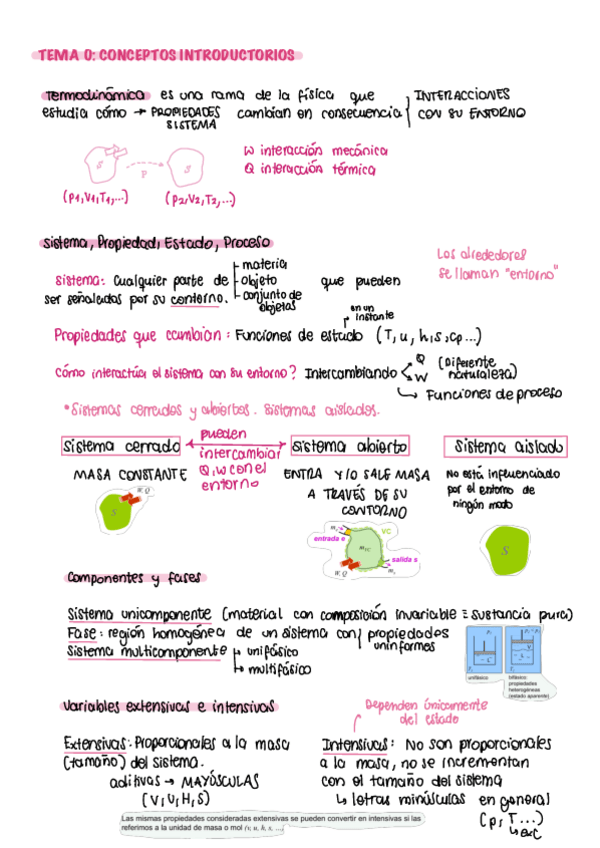 TEMA 0: CONCEPTOS INTRODUCTORIOS
Termodinámica es una rama de la física que
estudia cómo → PROPIEDADES SISTEMA cambian en consecuencia
INTERACCIONES
CON SU ENTORNO
S
P
S
(p1,V1,T1,...)
(p2,V2,T2,...)
W interacción mecánica
Q interacción térmica
Sistema, Propiedad, Estado, Proceso
Los alrededores
se llaman "entorno"
Sistema: Cualquier parte de
materia
objeto
conjunto de
objetos
que pueden
ser señaladas por su contorno.
en un
instante
Propiedades que cambian: Funciones de estado (T, u, h, s, cp...)
Cómo interactúa el sistema con su entorno? Intercambiando
Q
W
(Diferente
naturaleza)
Funciones de proceso
*Sistemas cerrados y abiertos. Sistemas aislados.
Sistema cerrado
pueden
intercambiar
Q, W con el
entorno
Sistema abierto
Sistema aislado
MASA CONSTANTE
ENTRA Y/O SALE MASA
A TRAVÉS DE SU
CONTORNO
No está influenciado
por el entorno de
ningún modo
W, Q
S
entrada e
VC
salida s
W, Q
S
Componentes y fases
Sistema unicomponente (material con composición invariable = sustancia pura)
Fase: región homogénea de un sistema con propiedades
uniformes
Sistema multicomponente
↳ unifásico
↳ multifásico
unifásico
bifásico:
propiedades
heterogéneas
(estado aparente)
Variables extensivas e intensivas
Dependen únicamente
del estado
Extensivas: Proporcionales a la masa
(tamaño) del sistema.
aditivas → MAYÚSCULAS
(V, U, H, S)
Intensivas: No son proporcionales
a la masa, no se incrementan
con el tamaño del sistema
↳ letras minúsculas en general
(p, T...)
↳ exc
Las mismas propiedades consideradas extensivas se pueden convertir en intensivas si las
referimos a la unidad de masa o mol (v, u, h, s, ...)